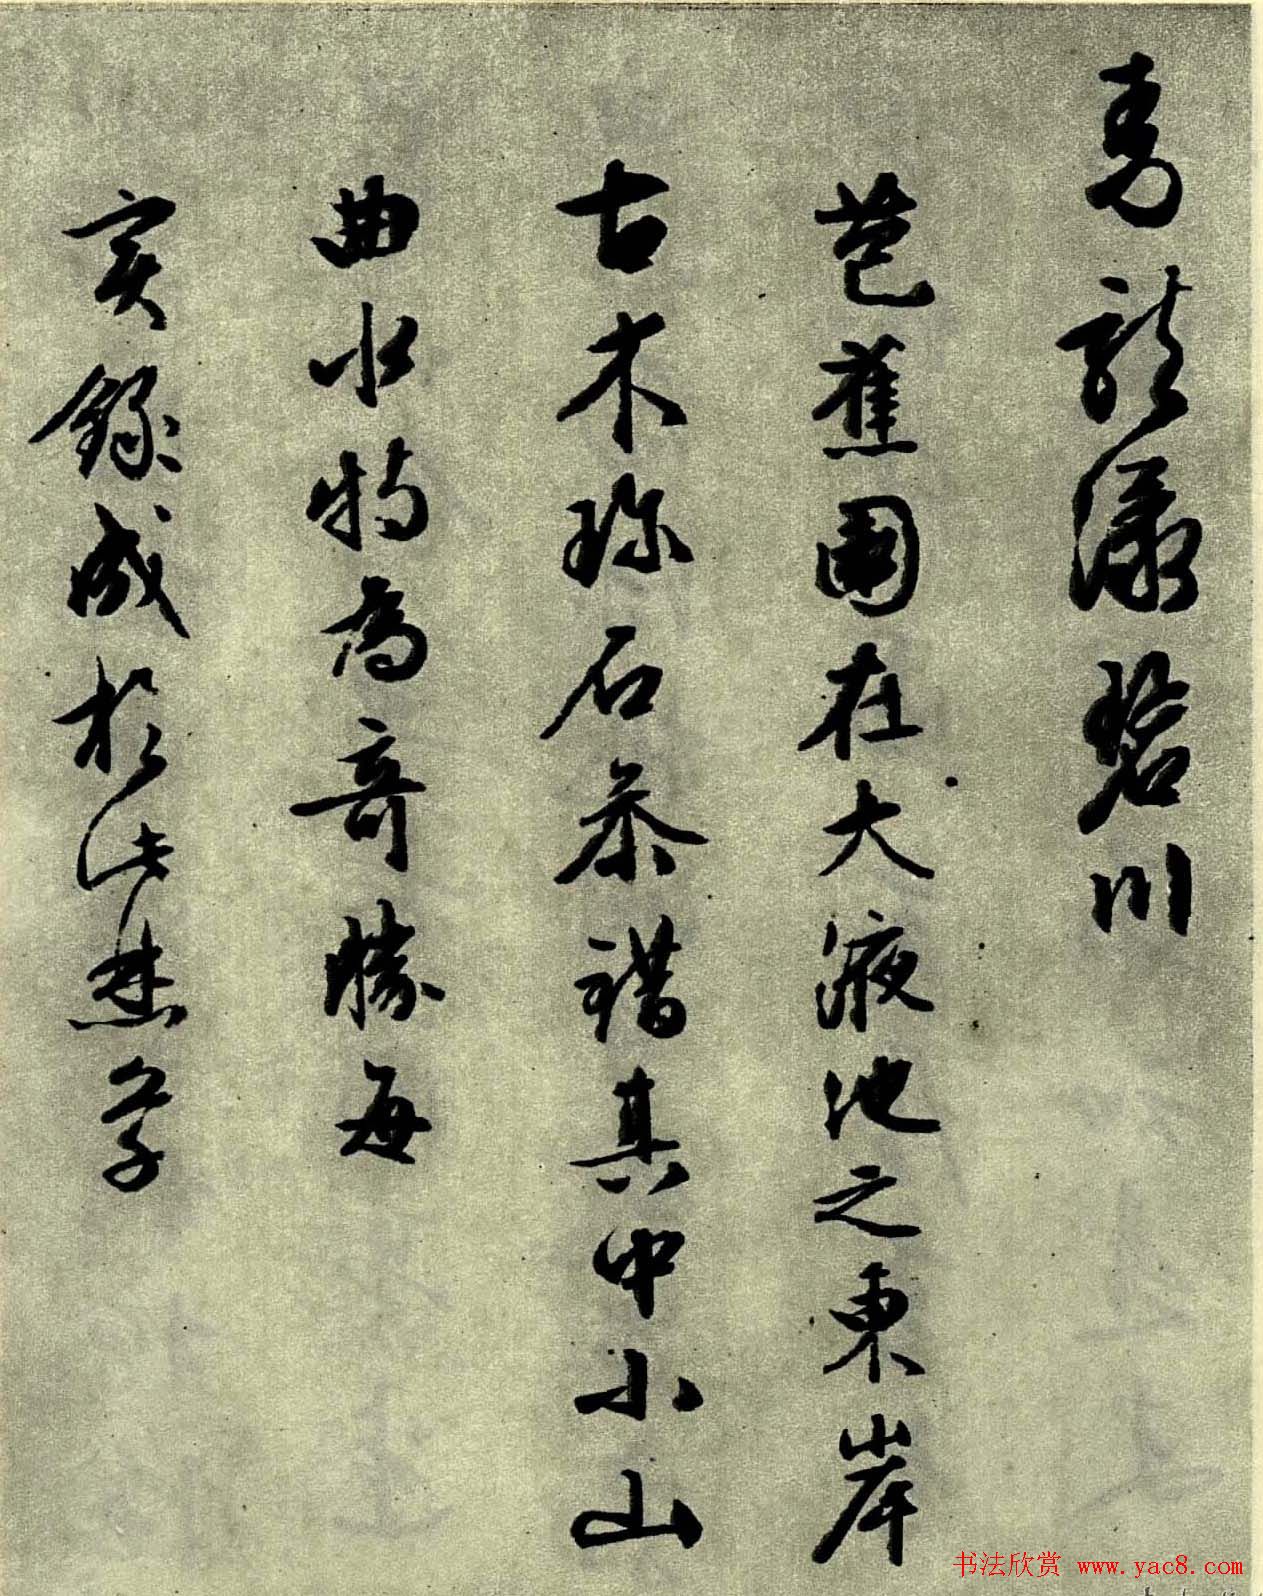 青龍瀑碧川
芭蕉園在大液池之東岸
古木珍石參錯其中小山
曲水特為奇勝每
实錄成於此焚草
书法欣赏 www.yac8.com